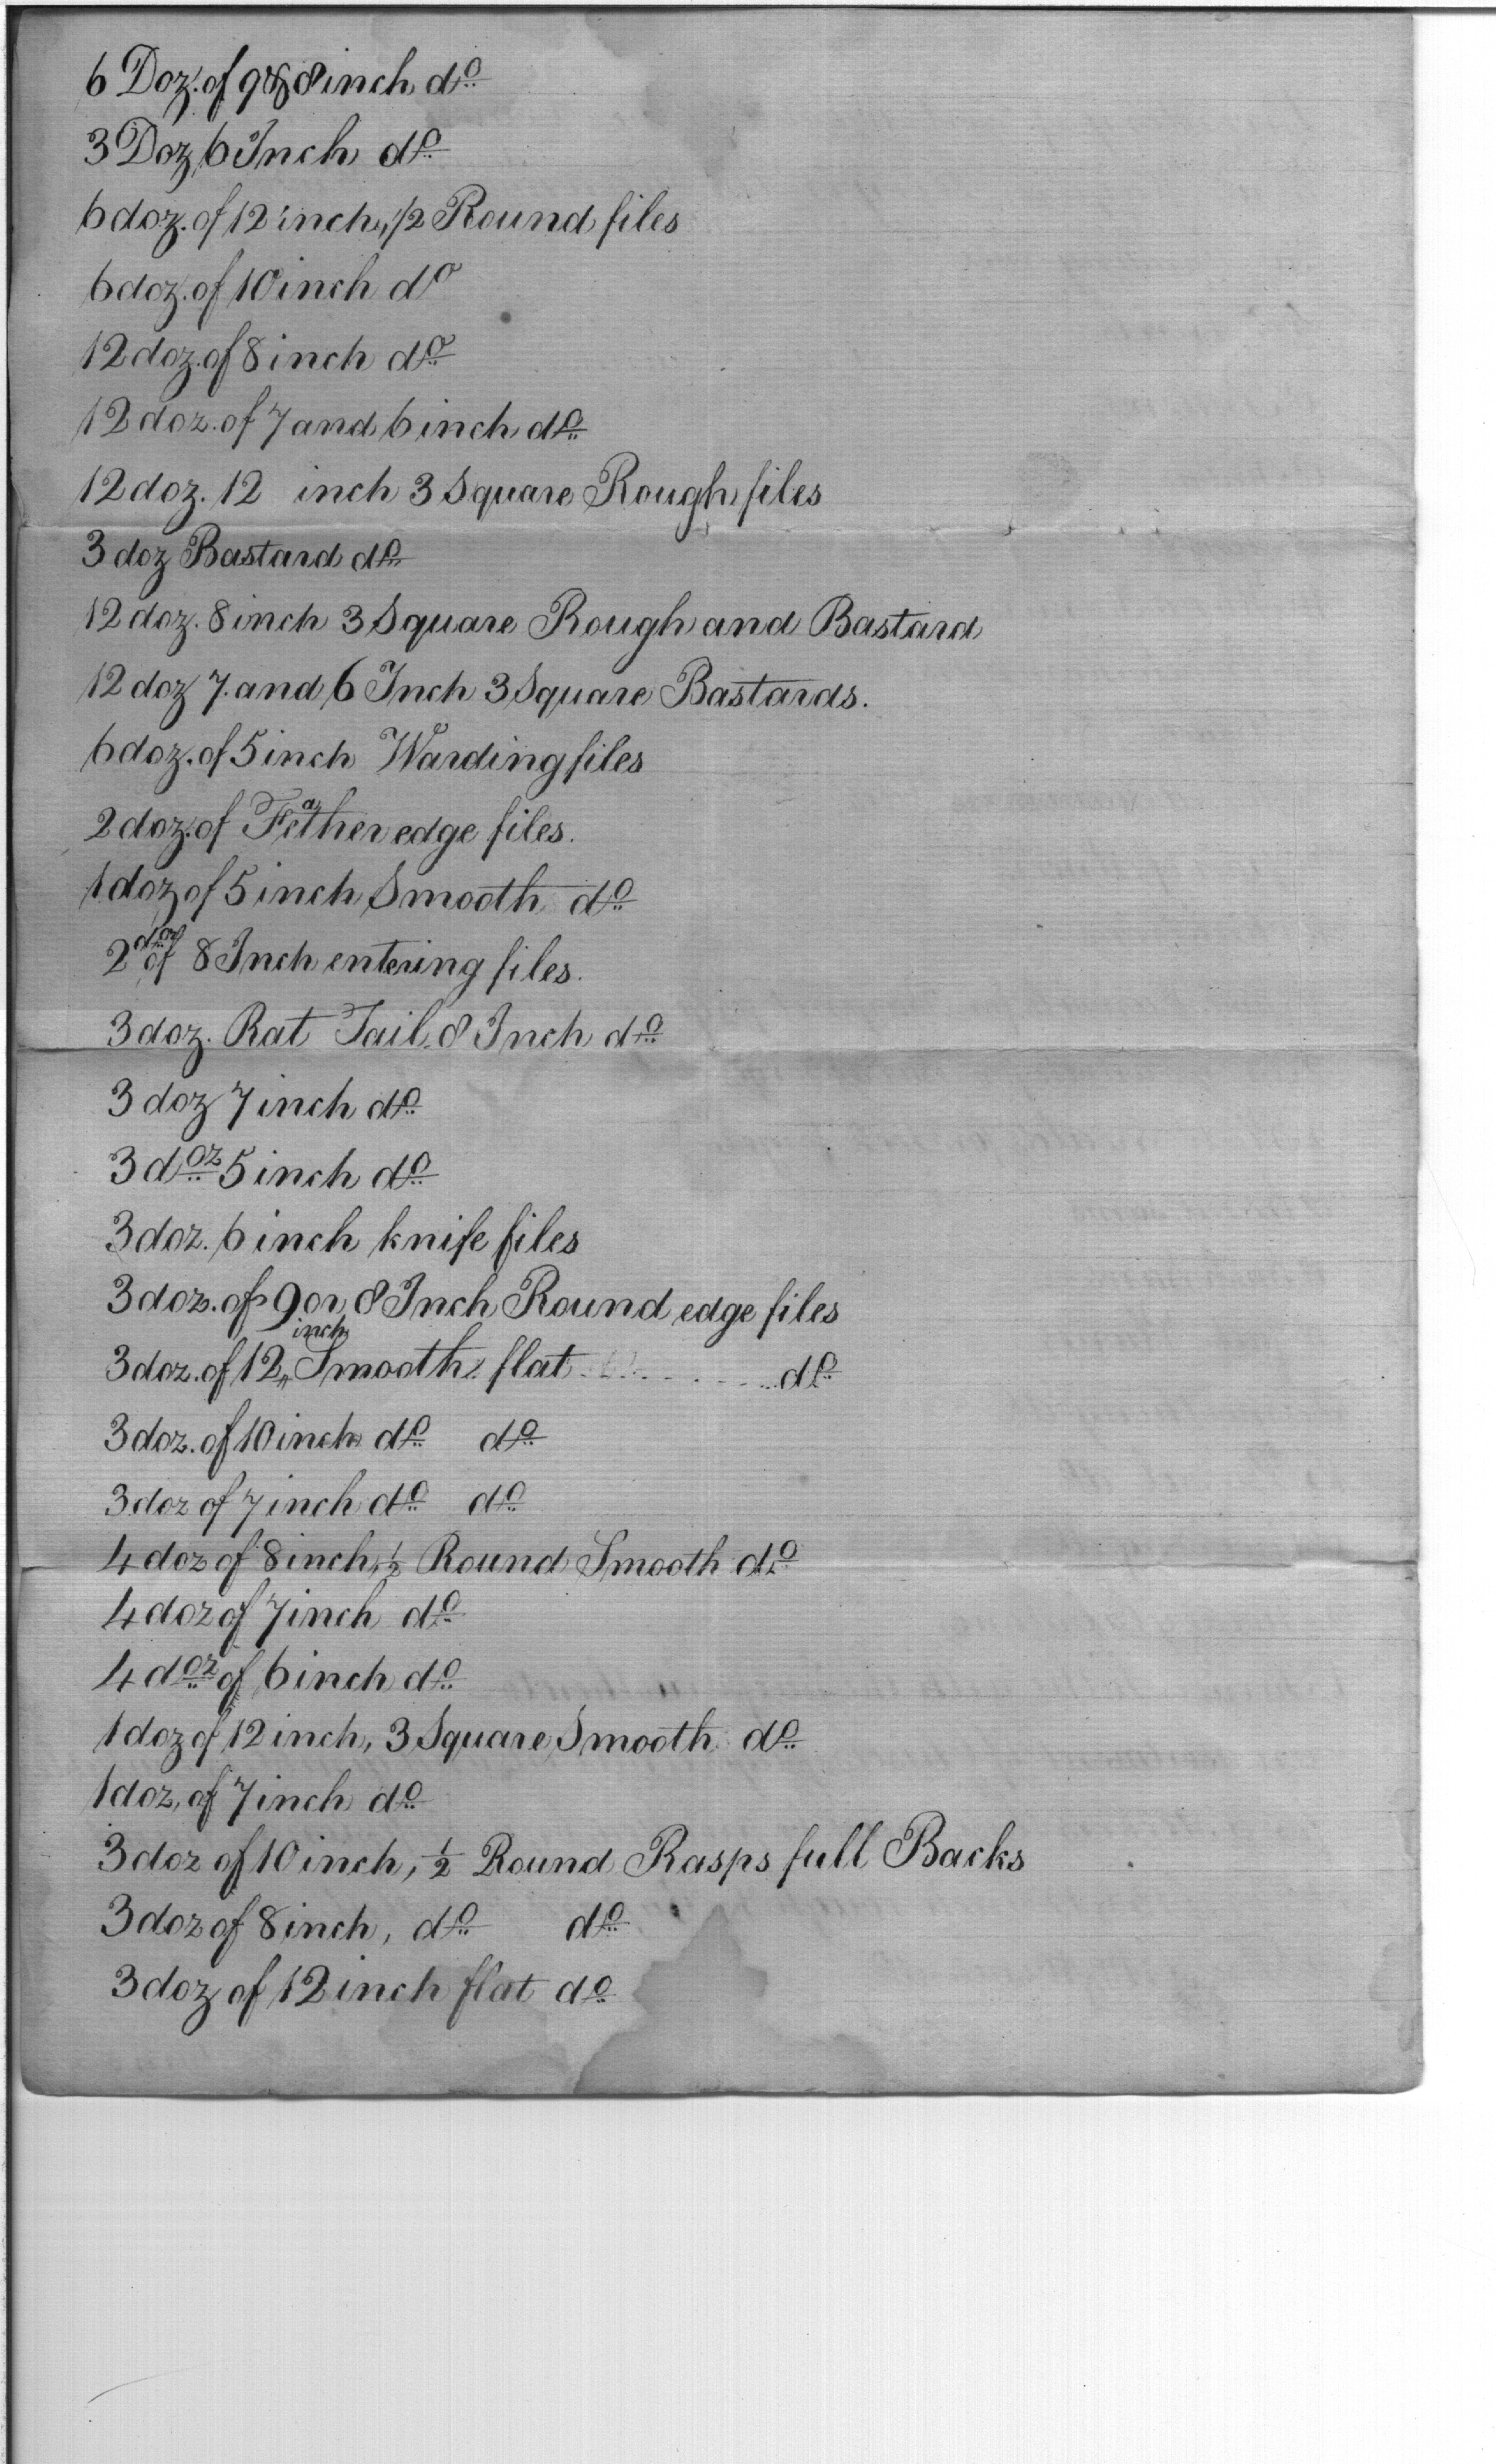 6 Doz. of 9 & 8 inch do
3 Doz 6 Inch do
6 doz. of 12 inch, 1/2 Round files
6 doz. of 10 inch do
12 doz. of 8 inch do
12 doz. of 7 and 6 inch do
12 doz. 12 inch 3 Square Rough files
3 doz Bastard do
12 doz. 8 inch 3 Square Rough and Bastard
12 doz 7. and 6 Inch 3 Square Bastards.
6 doz. of 5 inch Warding files
2 doz. of Feather edge files.
1 doz of 5 inch Smooth do
2 doz of 8 Inch entering files.
3 doz. Rat Tail 8 Inch do
3 doz 7 inch do
3 doz 5 inch do
3 doz. 6 inch knife files
3 doz. of 9 or 8 Inch Round edge files
3 doz. of 12 inch Smooth flat do
3 doz. of 10 inch do do
3 doz of 7 inch do do
4 doz of 8 inch, 1/2 Round Smooth do
4 doz of 7 inch do
4 doz of 6 inch do
1 doz of 12 inch, 3 Square Smooth do
1 doz, of 7 inch do
3 doz of 10 inch, 1/2 Round Rasps full Backs
3 doz of 8 inch, do do
3 doz of 12 inch flat do